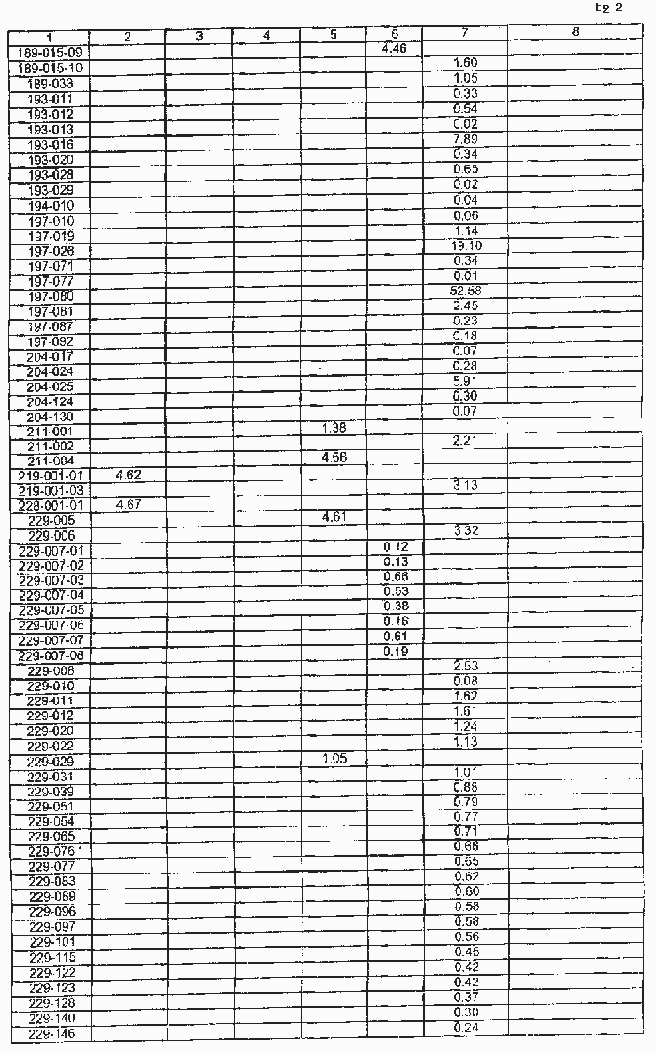 1 2 3 4 5 6 7 8
189-015-09 4.46
189-015-10 1.60
189-033 1.05
193-011 0.33
193-012 0.54
193-013 0.02
193-016 7.89
193-020 0.34
193-028 0.65
193-029 0.02
194-010 0.04
197-010 0.06
197-019 1.14
197-028 19.10
197-071 0.34
197-077 0.01
197-080 52.58
197-081 2.45
197-087 0.23
197-092 0.18
204-017 0.07
204-024 0.28
204-025
204-124 0.30
204-130 0.07
211-001 1.38
211-002
211-004 4.56
219-001-01 4.62
219-001-03 3.13
228-001-01 4.67
229-005 4.61
229-006 3.32
229-007-01 0.12
229-007-02 0.13
229-007-03 0.66
229-007-04 0.53
229-007-05 0.38
229-007-06 0.16
229-007-07 0.61
229-007-08 0.19
229-008 2.53
229-010 0.08
229-011 1.62
229-012
229-020 1.24
229-022 1.13
229-029 1.05
229-031
229-039 0.88
229-051 0.79
229-054 0.77
229-065 0.71
229-076 0.66
229-077 0.65
229-083 0.62
229-089 0.60
229-096 0.58
229-097 0.58
229-101 0.56
229-115 0.46
229-122 0.42
229-123 0.42
229-128 0.37
229-140 0.30
229-146 0.24